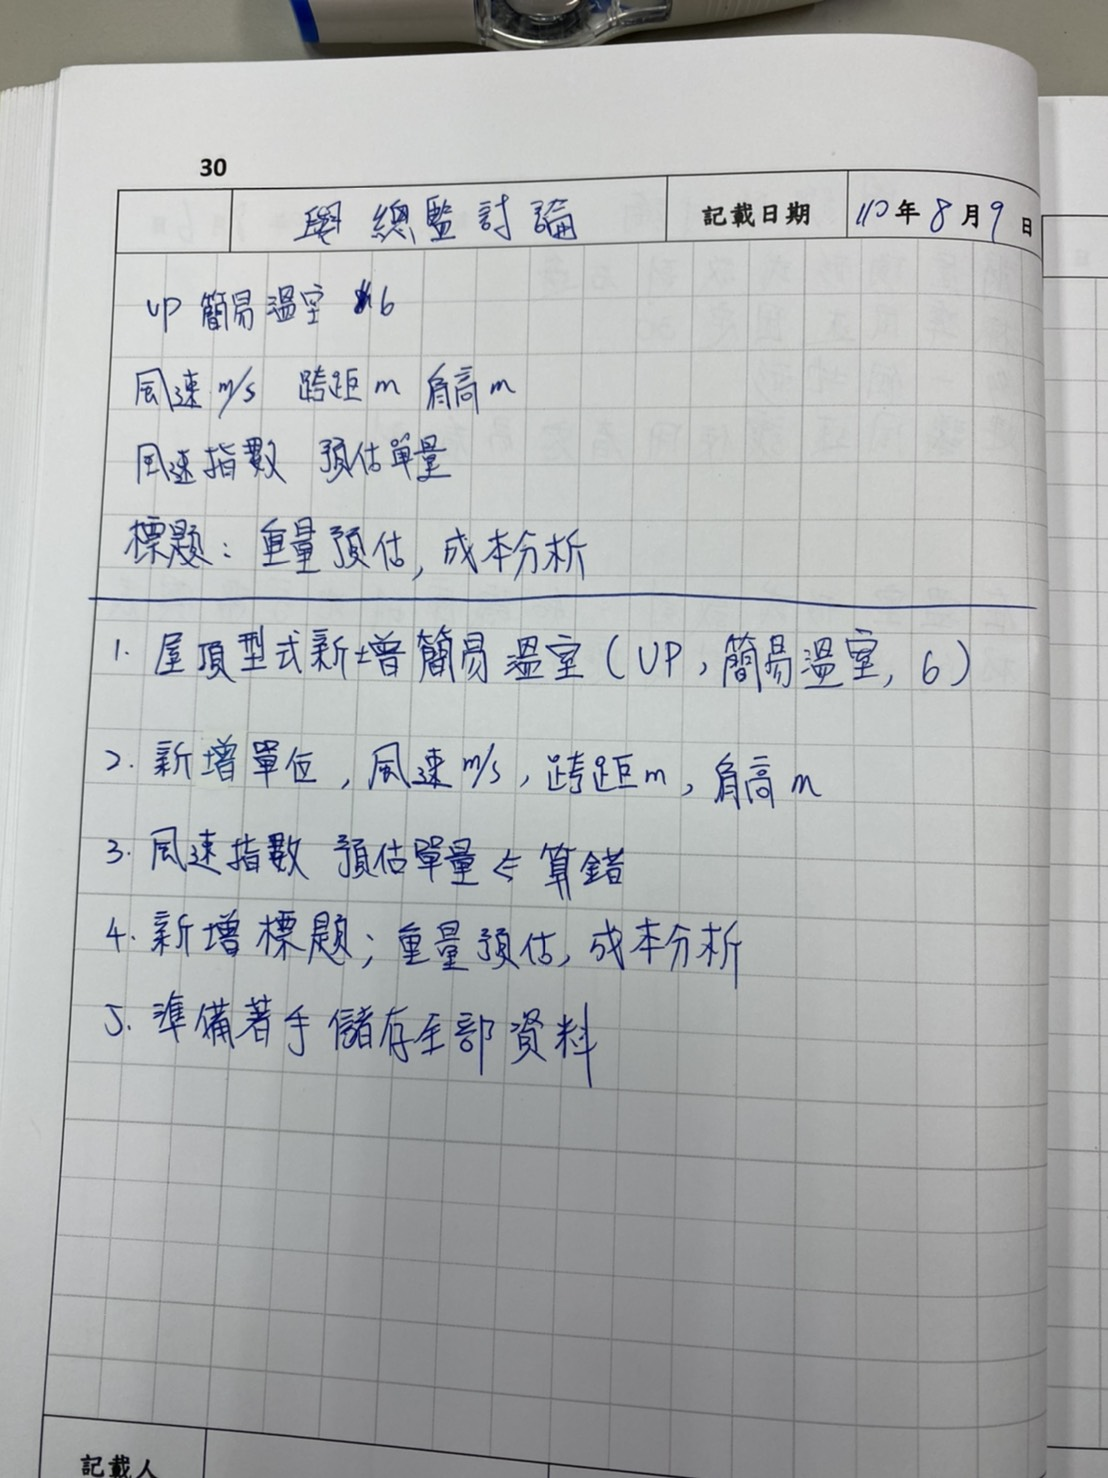 30
與總監討論 記載日期 110年8月9日
UP 簡易溫室 6
風速 m/s 跨距 m 肩高 m
風速指數 預估單量
標題：重量預估, 成本分析
1. 屋頂型式新增簡易溫室 (UP, 簡易溫室, 6)
2. 新增單位, 風速 m/s, 跨距 m, 肩高 m
3. 風速指數 預估單量 ⇐ 算錯
4. 新增標題; 重量預估, 成本分析
5. 準備著手儲存全部資料
記載人